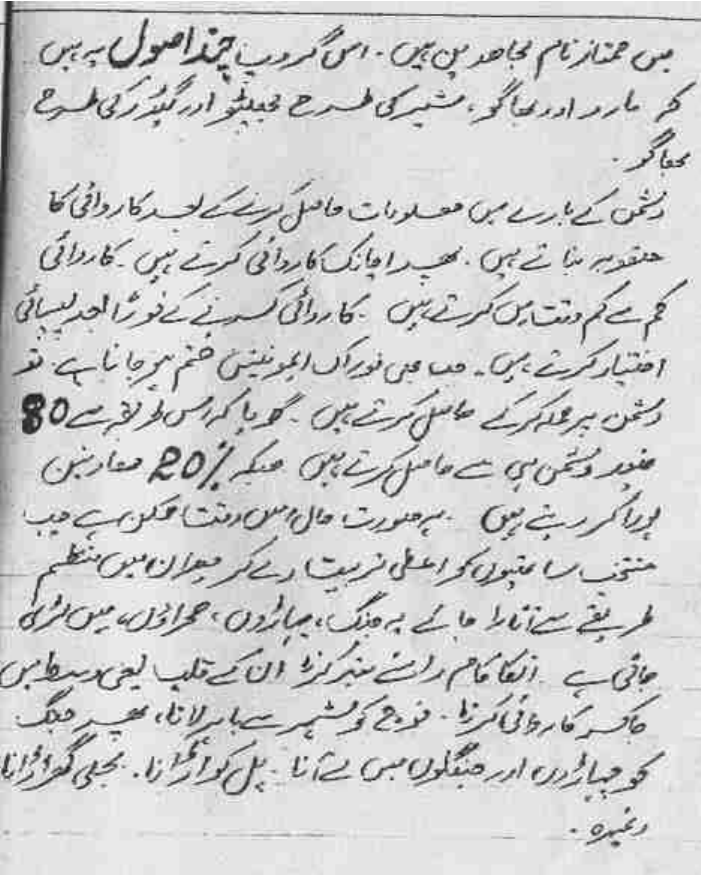 میں ممتاز نام مجاھدین ہیں ۔ اس گروپ چند اصول یہ ہیں
کہ مارو اور بھاگو ، شیر کی طرح جھپٹو اور گیدڑ کی طرح
بھاگو ۔
دشمن کے بارے میں معلومات حاصل کرنے کے بعد کاروائی کا
منصوبہ بناتے ہیں ۔ پھر اچانک کاروائی کرتے ہیں ۔ کاروائی
کم سے کم وقت میں کرتے ہیں ۔ کاروائی کرنے کے فوراً بعد پسپائی
اختیار کرتے ہیں ۔ جب بھی خوراک ایمونیشن ختم ہو جاتا ہے تو
دشمن پر حملہ کرکے حاصل کرتے ہیں ۔ گویا کہ اس طریقہ سے 80
فیصد دشمن ہی سے حاصل کرتے ہیں جبکہ 20% معاونین
پورا کر رہتے ہیں ۔ یہ صورت حال اس وقت ممکن ہے جب
منتخب ساتھیوں کو اعلیٰ تربیت دے کر میدان میں منظم
طریقے سے اتارا جائے یہ جنگ ، پہاڑوں ، صحراؤں ، میں لڑی
جاتی ہے انکا کام راستے بند کرنا ان کے قلب یعنی وسط میں
جاکر کاروائی کرنا ۔ فوج کو شہر سے باہر لانا ، پھر جنگ
کو پہاڑوں اور جنگلوں میں لے آنا ۔ پل کو اڑانا ۔ بجلی گھر اڑانا
وغیرہ ۔